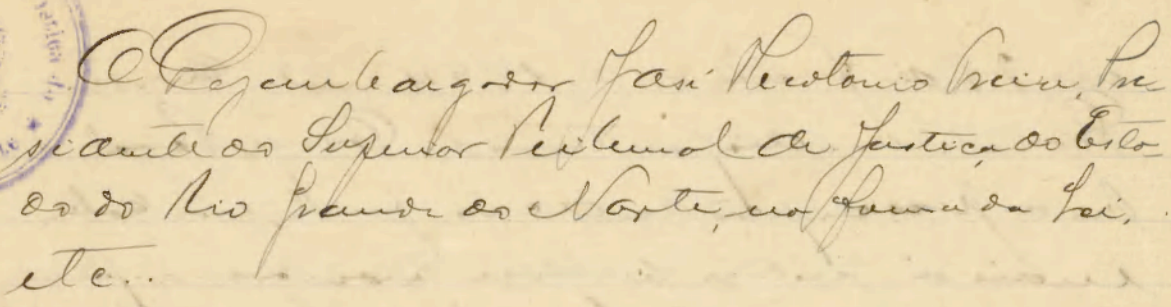 O Dezembargador José Theotonio Freire, Pre-
sidente do Superior Tribunal de Justiça do Esta-
do do Rio Grande do Norte, na forma da Lei,
etc..